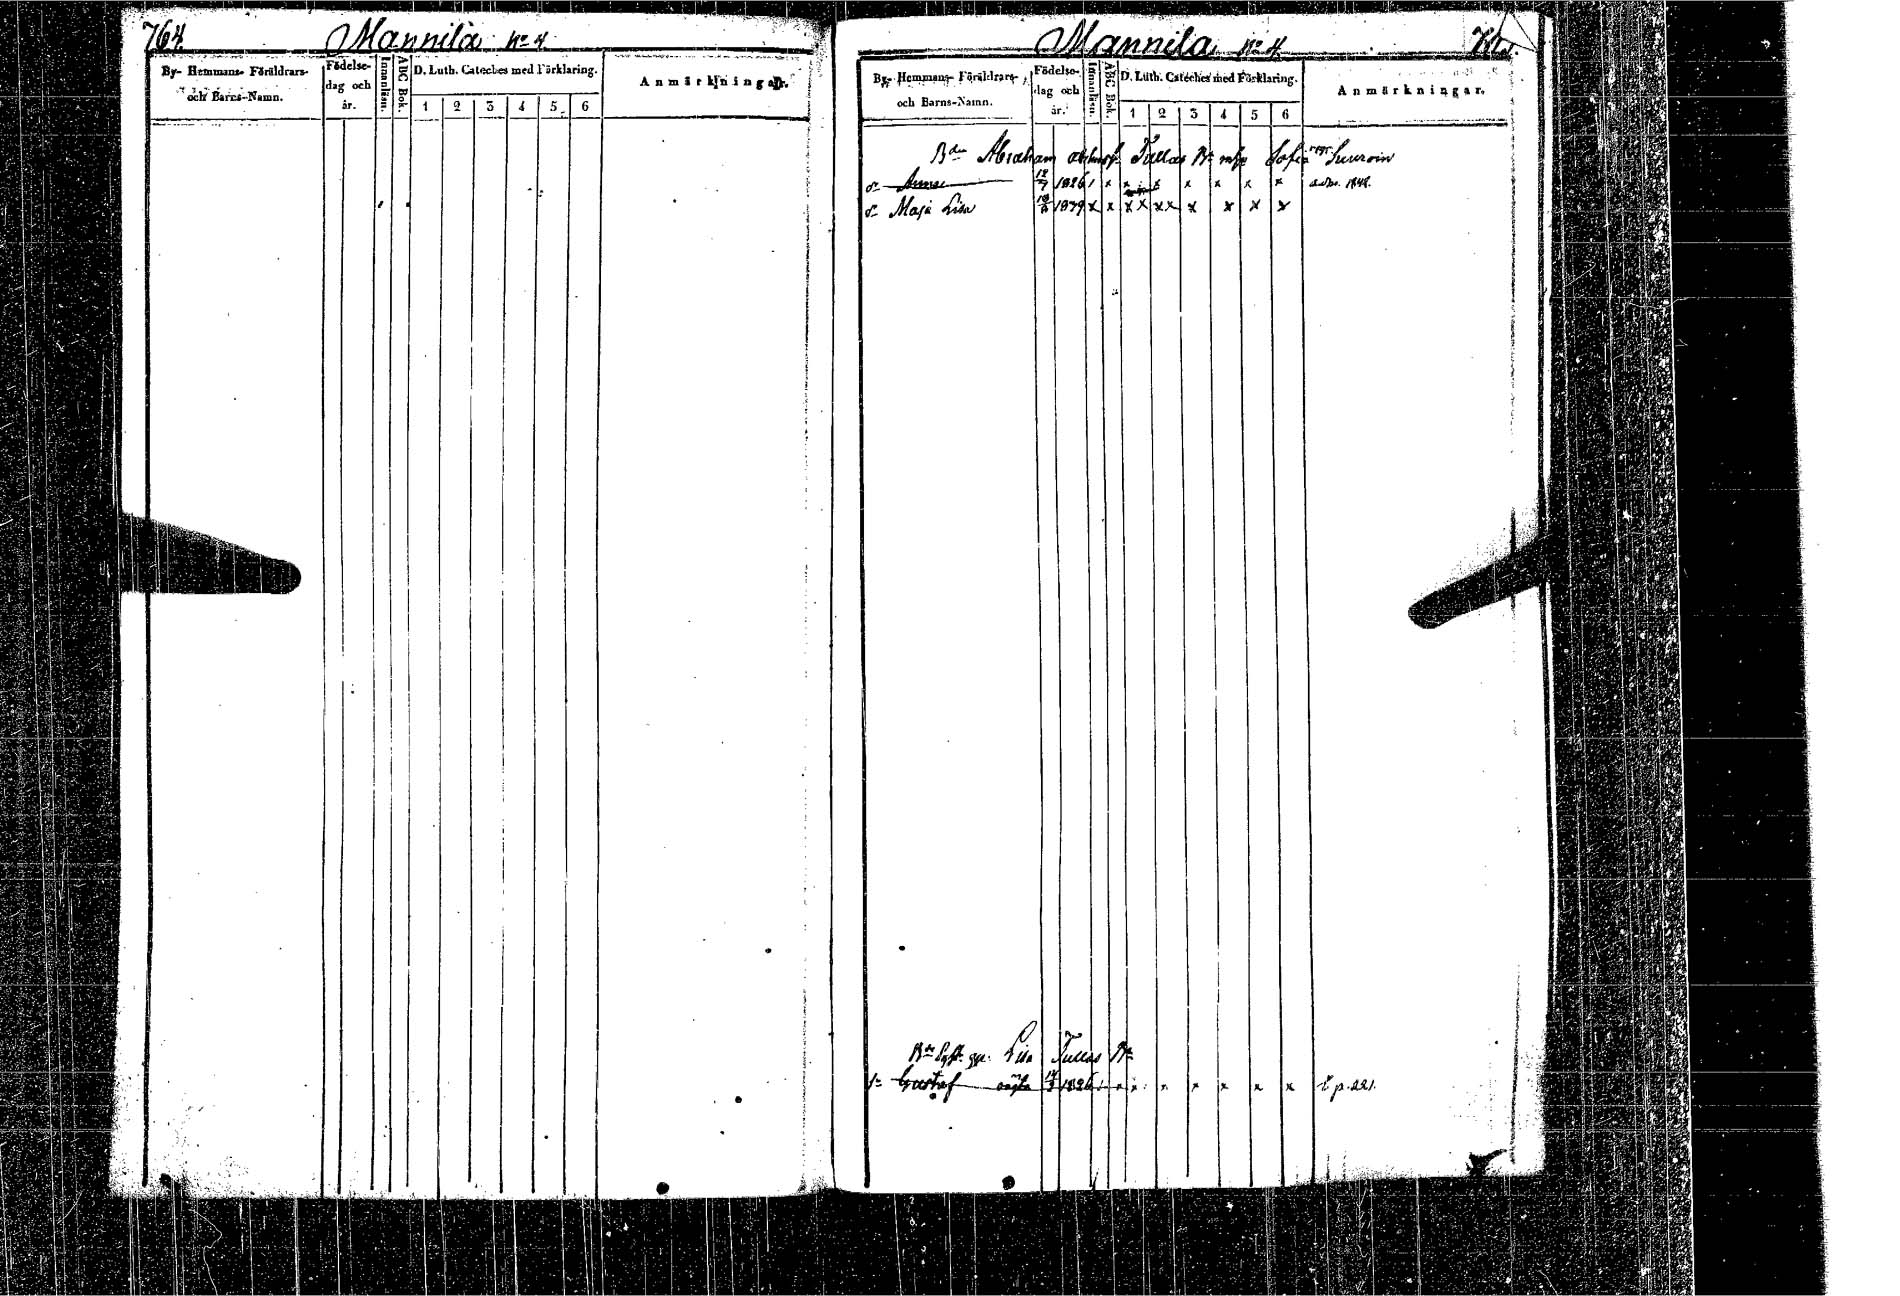 764.
Mannila No 4
By- Hemmans- Föräldrars-
och Barns-Namn.
Födelse-
dag och
år.
Innanläsn.
ABC Bok.
D. Luth. Cateches med Förklaring.
1 2 3 4 5 6
Anmärkningar.
Mannila No 4
By- Hemmans- Föräldrars-
och Barns-Namn.
Födelse-
dag och
år.
Innanläsn.
ABC Bok.
D. Luth. Cateches med Förklaring.
1 2 3 4 5 6
Anmärkningar.
Abraham Tallas Sofia
1826 x x x x x x x
Maja Lisa 1829 x x x x x x x x x x
Lisa Tallas
Gustaf 1826 x x x x x p. 221.